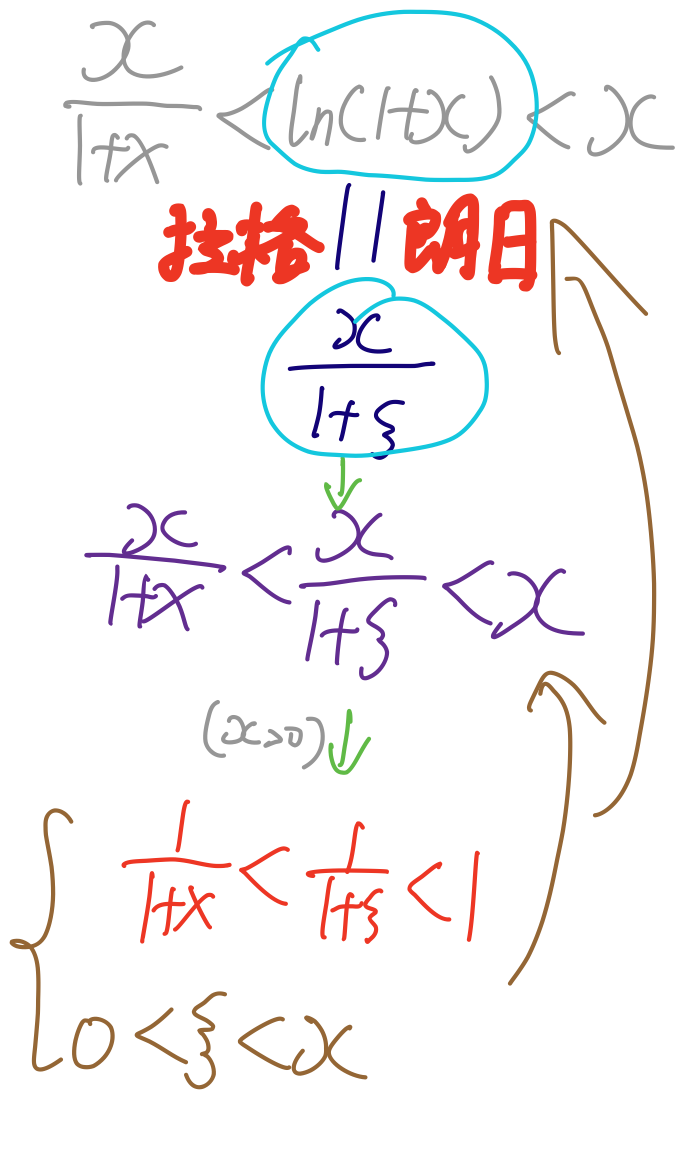 x/(1+x) < ln(1+x) < x
拉格 || 朗日
x/(1+ξ)
x/(1+x) < x/(1+ξ) < x
(x>0)
1/(1+x) < 1/(1+ξ) < 1
0 < ξ < x